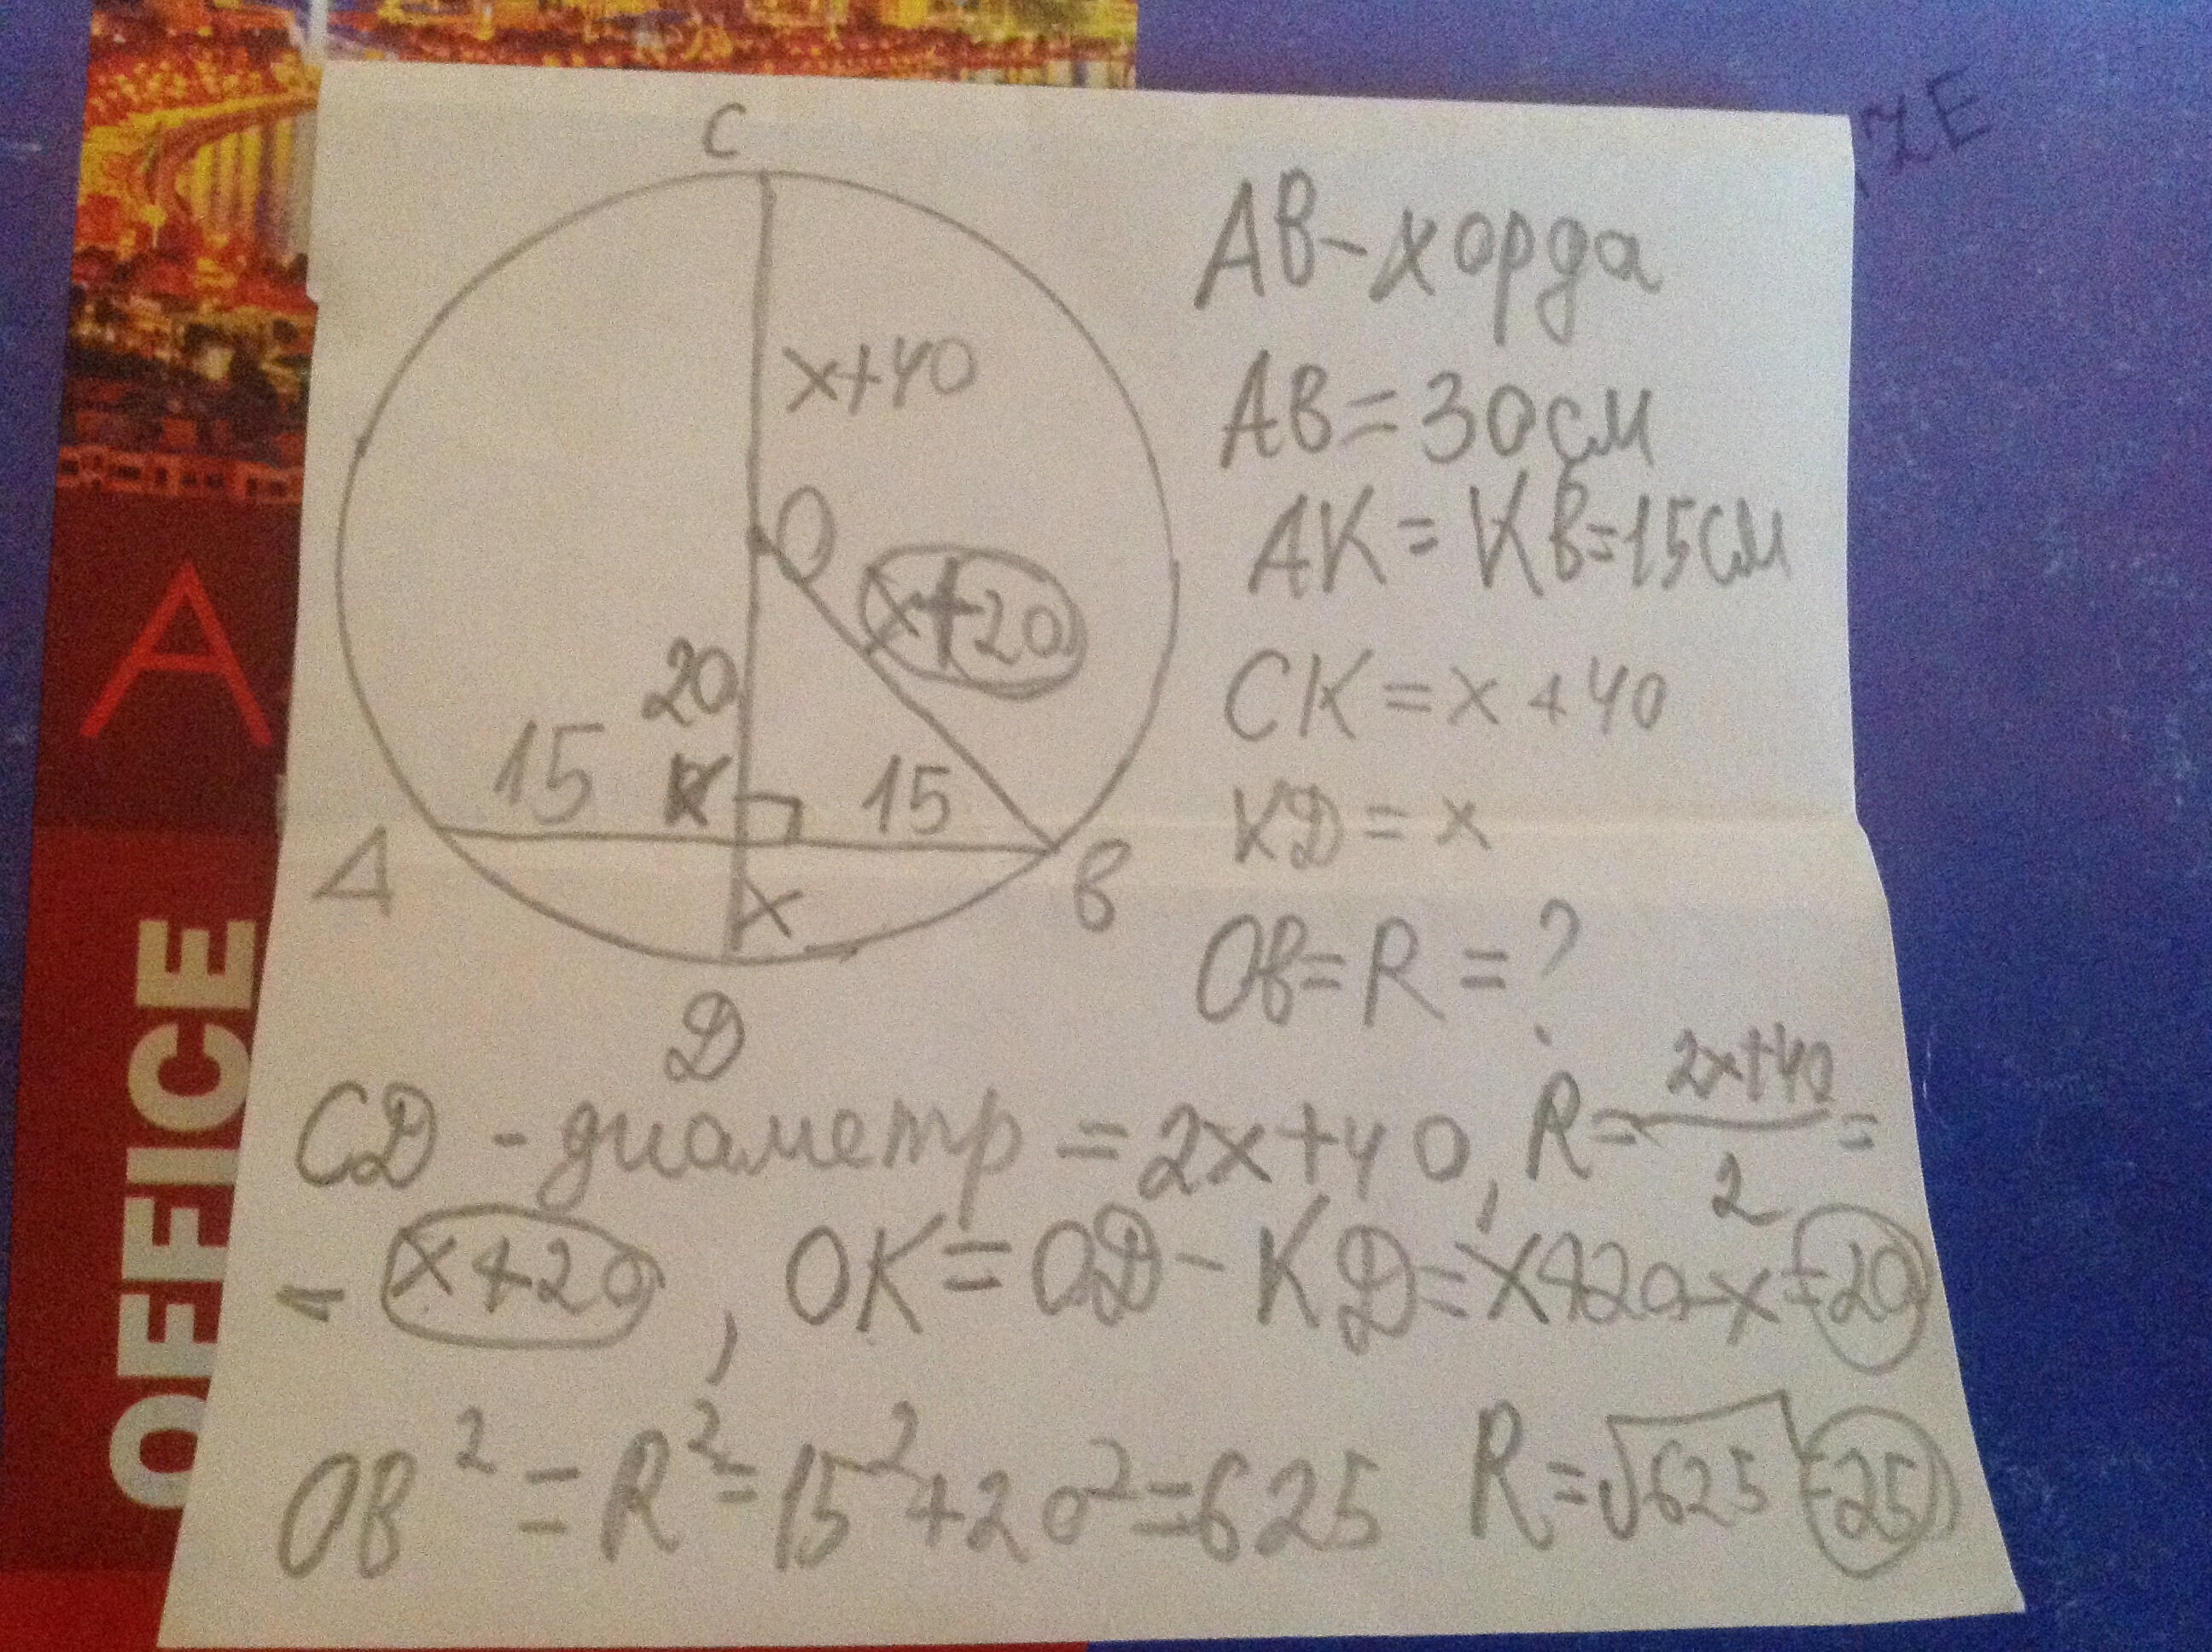 C
x+40
O
x+20
20
15
K
15
A
B
x
D
AB-хорда
AB=30см
AK=KB=15см
CK=x+40
KD=x
OB=R=?
CD-диаметр=2x+40, R=2x+40/2=
=x+20, OK=OD-KD=x+20-x=20
OB²=R²=15²+20²=625 R=√625=25
A
OFFICE
IZE